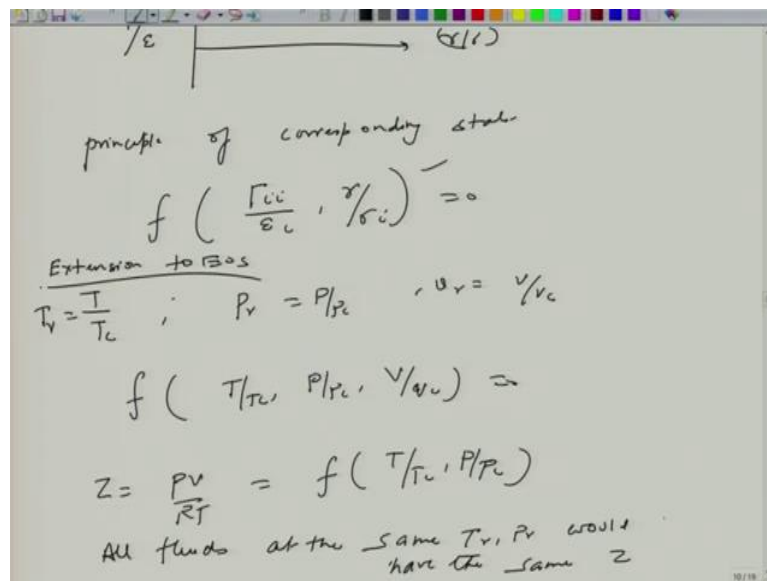 /ε (r/σ)
principle of corresponding state
f ( Γii/εi , r/σi ) = 0
Extension to EOS
Tr = T/Tc ; Pr = P/Pc , vr = V/Vc
f ( T/Tc, P/Pc, V/Vc ) =
Z = PV/RT = f ( T/Tc , P/Pc )
All fluids at the same Tr, Pr would
have the same Z
10/19